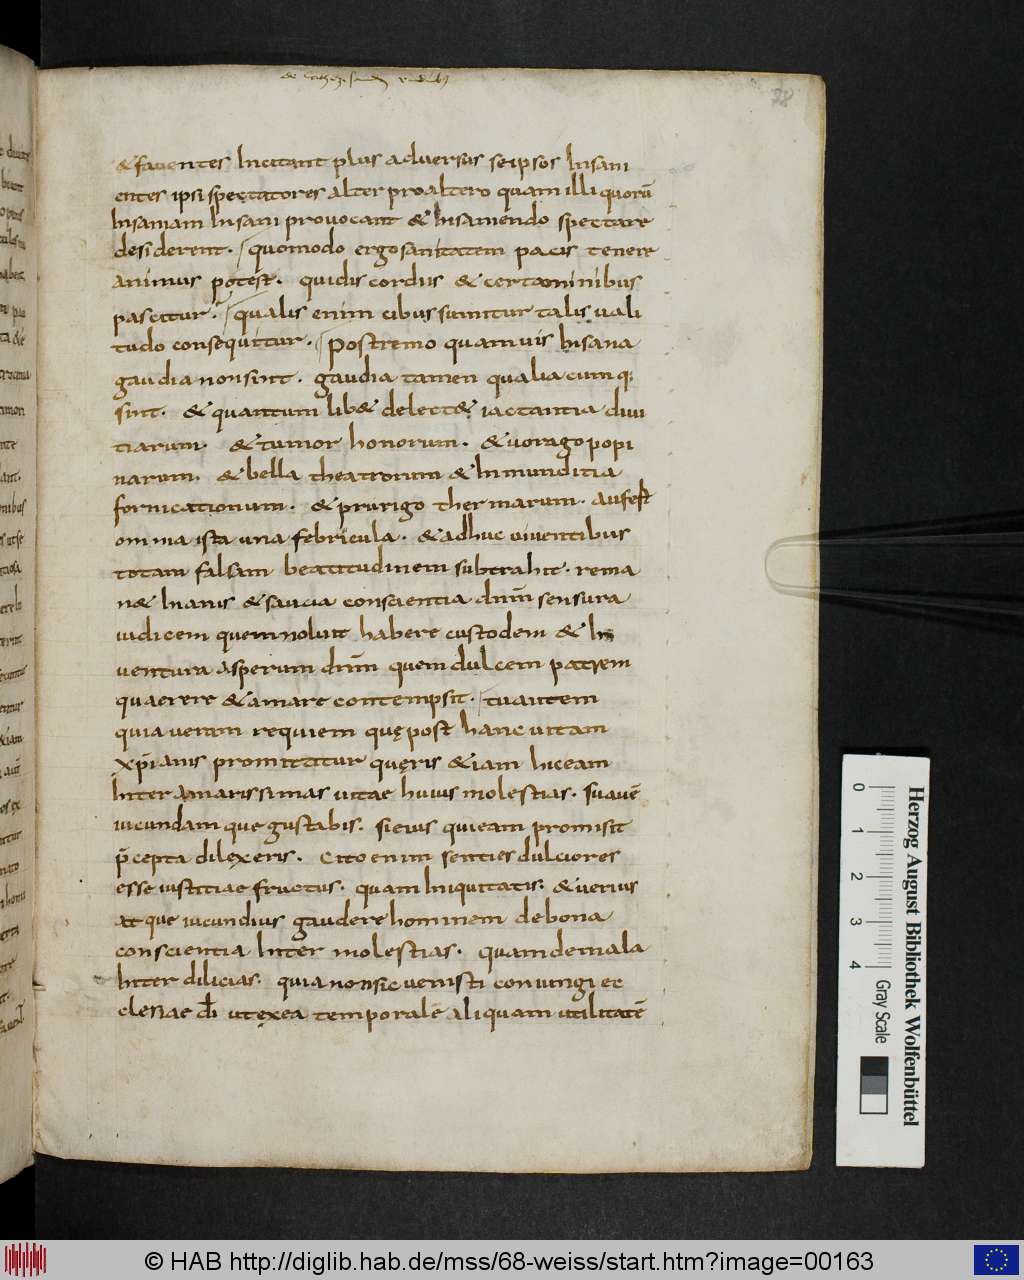 de Cathezizandis rudibus
78
& fauentes Incitant plus aduersus seipsos Insani
entes ipsi spectatores alter pro altero quam illi quorū
Insaniam Insani prouocant & Insaniendo spectare
desiderent. quomodo ergo sanitatem pacis tenere
animus potest. qui discordiis & certaminibus
pascitur. qualis enim cibus sumitur talis uali
tudo consequitur. Postremo quamuis Insana
gaudia non sint. gaudia tamen qualiacumq;
sint. & quantum lib& delect& iactantia diui
tiarum. & tumor honorum. & uorago popi
narum. & bella theatrorum & Inmunditia
fornicationum. & prurigo thermarum. aufert
omnia ista una febricula. & adhuc uiuentibus
totam falsam beatitudinem subtrahit. rema
n& Inanis & saucia conscientia dn̄m sensura
iudicem quem noluit habere custodem & In
ventura asperum dn̄m quem dulcem patrem
quaerere & amare contempsit. tu autem
quia ueram requiem quę post hanc uitam
xp̄ianis promittitur quęris & iam hic eam
Inter amarissimas uitae huius molestias. suauē
iucundamque gustabis. si eius qui eam promisit
p̄cepta dilexeris. Cito enim senties dulciores
esse iustitiae fructus. quam Iniquitatis. & uerius
atque iucundius gaudere hominem de bona
conscientia Inter molestias. quam de mala
Inter dilicias. quia non sic uenisti coniungi ec
clesiae dī ut ex ea temporalē aliquam utilitatē
Herzog August Bibliothek Wolfenbüttel
0 1 2 3 4
Gray Scale
© HAB http://diglib.hab.de/mss/68-weiss/start.htm?image=00163